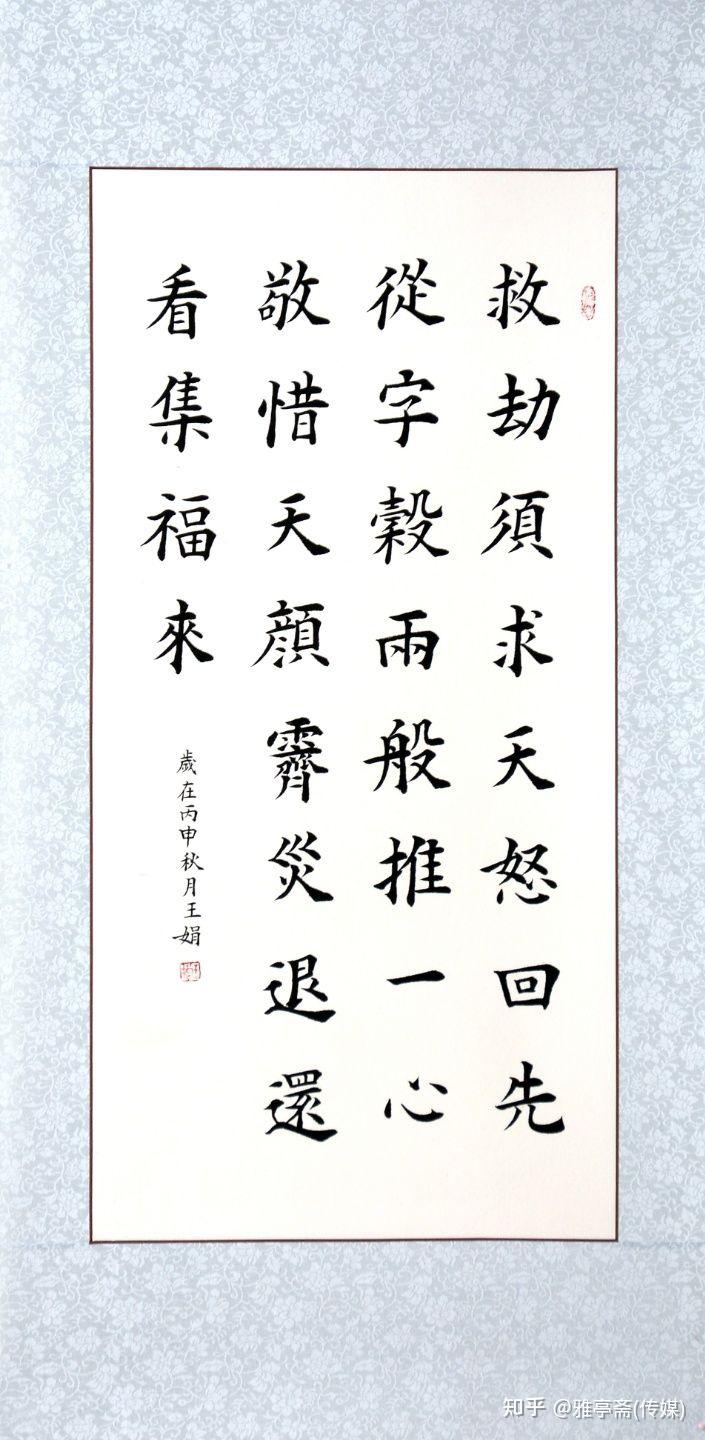 救劫須求天怒回先
從字穀兩般推一心
敬惜天顔霽災退還
看集福來
歲在丙申秋月王娟
知乎 @雅亭斋(传媒)